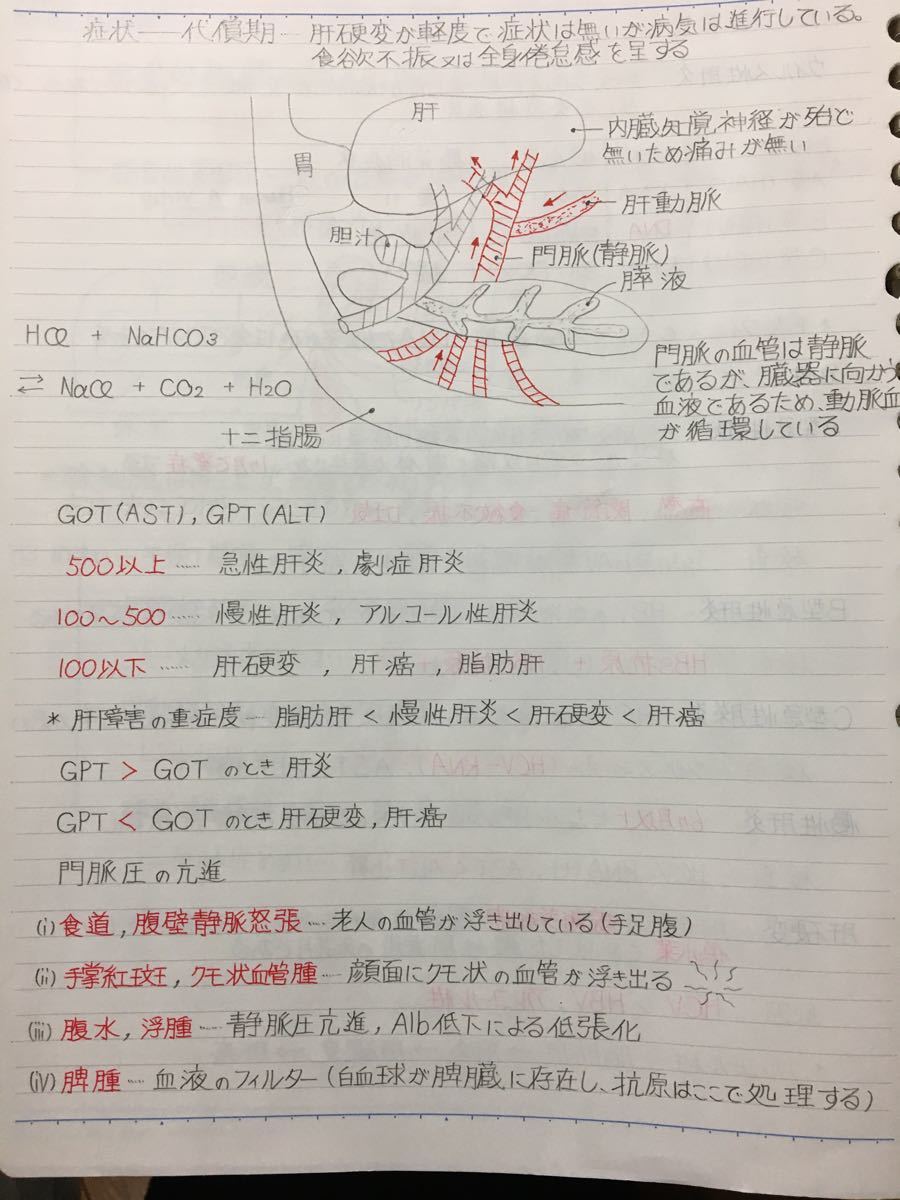 症状 ── 代償期 … 肝硬変が軽度で症状は無いが病気は進行している。
食欲不振又は全身倦怠感を呈する
肝
胃
内臓知覚神経が殆ど
無いため痛みが無い
肝動脈
胆汁
門脈(静脈)
膵液
HCl + NaHCO3
⇄ NaCl + CO2 + H2O
門脈の血管は静脈
であるが、臓器に向かう
血液であるため、動脈血
が循環している
十二指腸
GOT(AST), GPT(ALT)
500以上 …… 急性肝炎, 劇症肝炎
100〜500 …… 慢性肝炎, アルコール性肝炎
100以下 …… 肝硬変, 肝癌, 脂肪肝
* 肝障害の重症度 … 脂肪肝 < 慢性肝炎 < 肝硬変 < 肝癌
GPT > GOT のとき 肝炎
GPT < GOT のとき 肝硬変, 肝癌
門脈圧の亢進
(i) 食道, 腹壁静脈怒張 … 老人の血管が浮き出している(手足腹)
(ii) 手掌紅斑, クモ状血管腫 … 顔面にクモ状の血管が浮き出る
(iii) 腹水, 浮腫 … 静脈圧亢進, Alb低下による低張化
(iv) 脾腫 … 血液のフィルター(白血球が脾臓に存在し、抗原はここで処理する)